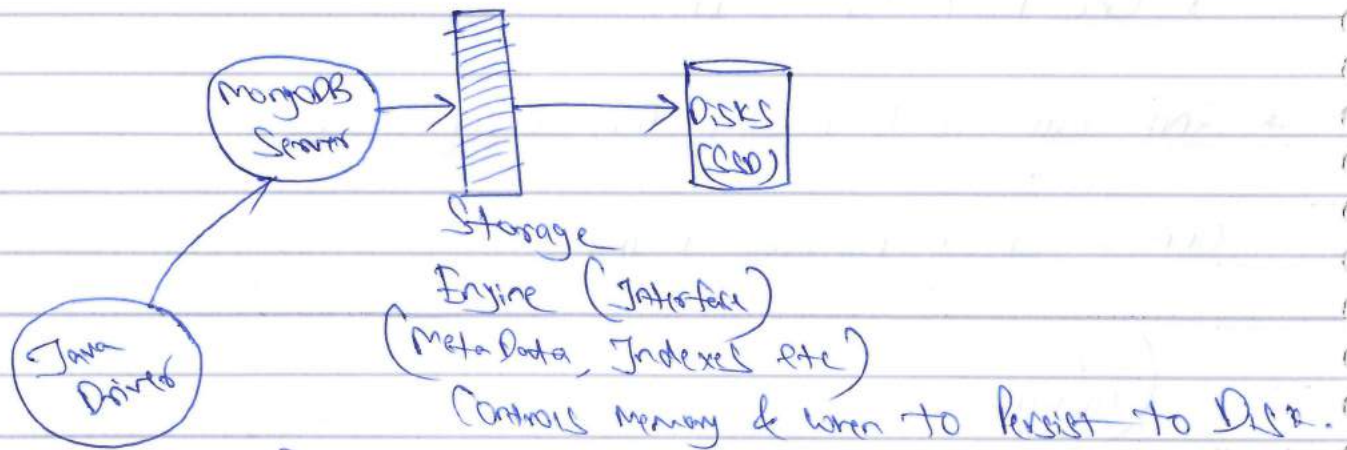 MongoDB
Server
Disks
(SSD)
Storage
Engine (Interface)
(Meta Data, Indexes etc)
Controls Memory & when to Persist to Disk.
Java
Driver